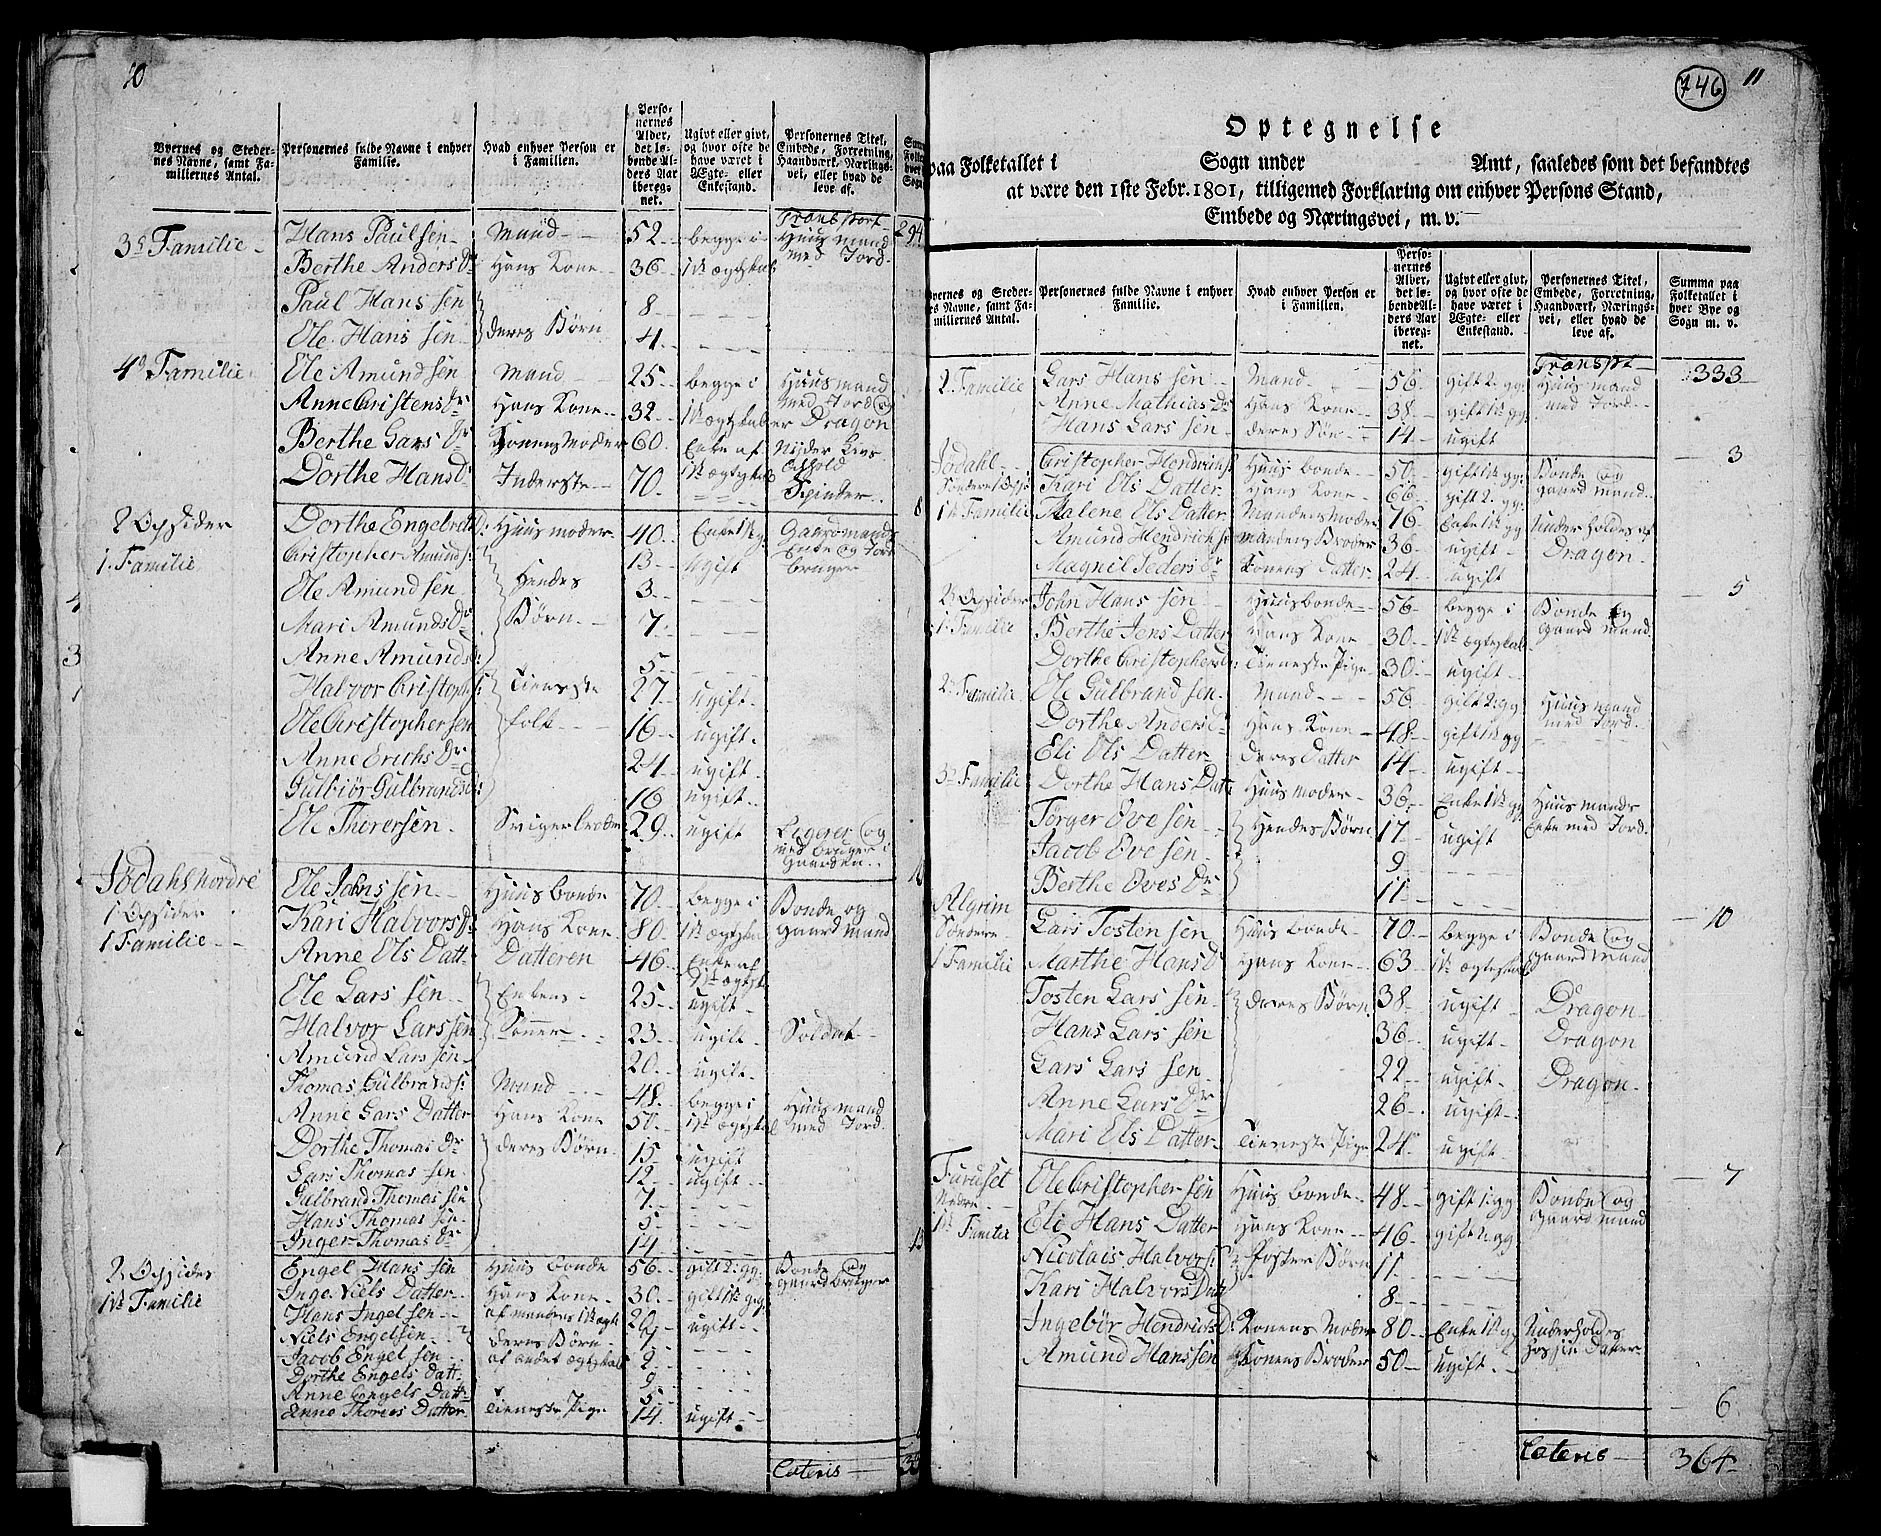 10
Byernes og Stedernes Navne, samt Familiernes Antal.
Personernes fulde Navne i enhver Familie.
Hvad enhver Person er i Familien.
Personernes Alder, det løbende Alders Aar iberegnet.
Ugivt eller givt, og hvor ofte de have været i Ægte- eller Enkestand.
Personernes Titel, Embede, Forretning, Haandværk, Næringsvei, eller hvad de leve af.
Transport 294
3d Familie Hans Paulsen Mand 52 begge i Huusmand
Berthe Anders Dr Hans Kone 36 1ste ægteskab med Jord
Paul Hans sen deres Børn 8
Ole Hans sen 4
4d Familie Ole Amund sen Mand 25 begge i Huusmand
Anne Cristens Dr Hans Kone 32 1ste ægteskab med Jord og er Dragon
Berthe Lars Dr Konens Moder 60 Enke af Nyder Levs
Dorthe Hans D. Inderste 70 1ste ægteskab Ophold Spinder 8
2 Opsider Dorthe Engebrets D: Huusmoder 40 Enke 1ste g. Gaardmands
1. Familie Cristopher Amunds: 13 ugift Enke og Jord bruger
Ole Amund sen Hendes 3
Mari Amunds Dr Børn 7
Anne Amunds D: 5
Halvor Cristophs: Tieneste 27 ugift
Ole Cristopher sen folk 16 ugift
Anne Erichs Dr 24 ugift
Gulbiør Gulbrands D: 16 ugift
Ole Thorersen Svigerbroder 29 ugift og med bruger i Gaarden
Jødahl nordre Ole Johns sen Huusbonde 70 begge i Bonde og
1 Opsider Kari Halvors D. Hans Kone 80 1ste ægtesk. gaardmand
1 Familie Anne Ols Datt. Datteren 46 Enke af 1ste ægtesk.
Ole Lars sen Enkens 25 ugift
Halvor Lars sen Sønner 23 ugift Soldat
Amund Lars sen 20 ugift
Thomas Gulbrands: Mand 48 begge i Huusmand
Anne Lars Datter Hans Kone 50 1ste ægteskab med Jord
Dorthe Thomas Dr deres Børn 15 ugift
Lars Thomas sen 12 ugift
Gulbrand Thomas sen 7
Hans Thomas sen 5
Inger Thomas Dr 14
2 Opsider Engel Hans sen Huusbonde 56 gift 2. gg. Bonde og
1ste Familie Inge Niels Datter Hans Kone 30 gift 1ste gg. gaardbruger
Hans Engel sen af mandens 1ste ægte 20 ugift
Niels Engelsen deres Børn
Jacob Engel sen af andet ægteskab 9
Dorthe Engels Datt. 9
Anne Engels Datt. 5
Anne Thomas Datter Tieneste Pige 14 ugift
Lateris
746
11
Optegnelse
paa Folketallet i Sogn under Amt, saaledes som det befandtes
at være den 1ste Febr. 1801, tilligemed Forklaring om enhver Persons Stand,
Embede og Næringsvei, m.v.
Byernes og Stedernes Navne, samt Familiernes Antal.
Personernes fulde Navne i enhver Familie.
Hvad enhver Person er i Familien.
Personernes Alder, det løbende Alders Aar iberegnet.
Ugivt eller givt, og hvor ofte de have været i Ægte- eller Enkestand.
Personernes Titel, Embede, Forretning, Haandværk, Næringsvei, eller hvad de leve af.
Summa paa Folketallet i hver Bye og Sogn m. v.
Transpt 333
2. Familie Lars Hans sen Mand 56 gift 2. gg. Huusmand
Anne Mathias Dr Hans Kone 38 gift 1ste gg. med Jord
Hans Lars sen deres Søn 14 ugift 3
Jødahl Cristopher Hendrichs: Huusbonde 50 gift 1ste gg. Bonde og
Søndere Kari Ols Datter Hans Kone 66 gift 2. gg. gaardmand
1ste Familie Malene Ols Datter Mandens Moder 76 Enke 1ste gg Underholdes af
Amund Hendrichs: mandens Broder 36 ugift Dragon
Magnil Peders Dr Konens Datter 24 ugift 5
2 Opsider John Hans sen Huusbonde 56 begge i Bonde og
1. Familie Berthe Jens Datter Hans Kone 30 1ste ægteskab gaardmand
Dorthe Cristophers D: Tieneste Pige 30 ugift
2. Familie Ole Gulbrand sen Mand 56 gift 2. gg Huusmand
Dorthe Anders D. Hans Kone 48 gift 1ste gg med Jord
Eli Ols Datter deres Datter 14 ugift
3d Familie Dorthe Hans Datt. Huusmoder 36 Enke 1ste gg Huusmands
Tørger Ove sen Hendes Børn 17 ugift Enke med Jord
Jacob Ove sen 9
Berthe Oves Dr 11 10
Algrim Søndere Lars Tosten sen Huusbonde 70 begge i Bonde og
1 Familie Marthe Hans D Hans Kone 63 1ste ægteskab gaardmand
Tosten Lars sen deres Børn 38 ugift Dragon
Hans Lars sen 36 ugift Dragon
Lars Lars sen 22 ugift Dragon
Anne Lars Dr 26 ugift
Mari Ols Datter Tieneste Pige 24 ugift 7
Furuset Ole Cristopher sen Huusbonde 48 gift 1. gg Bonde og
Nedre Eli Hans Datter Hans Kone 46 gift 2. gg gaardmand
1ste Familie Nicolais Halvors: Foster Børn 11
Kari Halvors Datt. 8
Ingebør Hendrichs D: Konens Moder 80 Enke 1ste g. Underholdes hos sin Datter
Amund Hanssen Konens Broder 50 ugift 6
Lateris 364